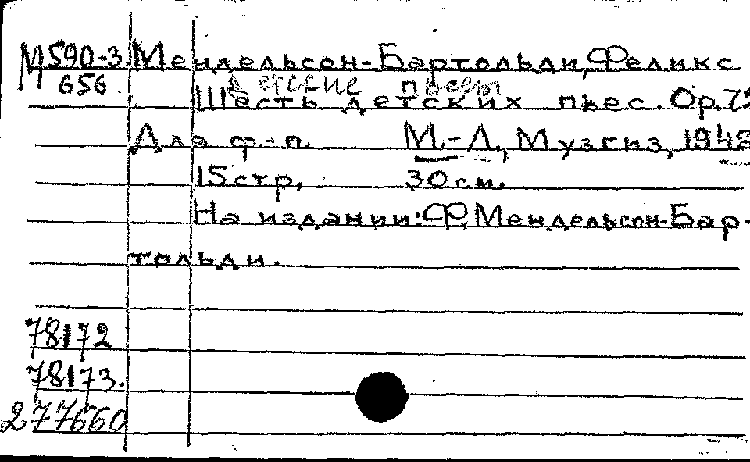 М590-3 Мендельсон-Бартольди, Феликс
656 Детские пьесы
Шесть детских пьес. Ор. 72
Для ф.-п. М.-Л., Музгиз,
15 стр. 30 см.
На издании: Ф. Мендельсон-Бар-
тольди.
78172
78173.
277660